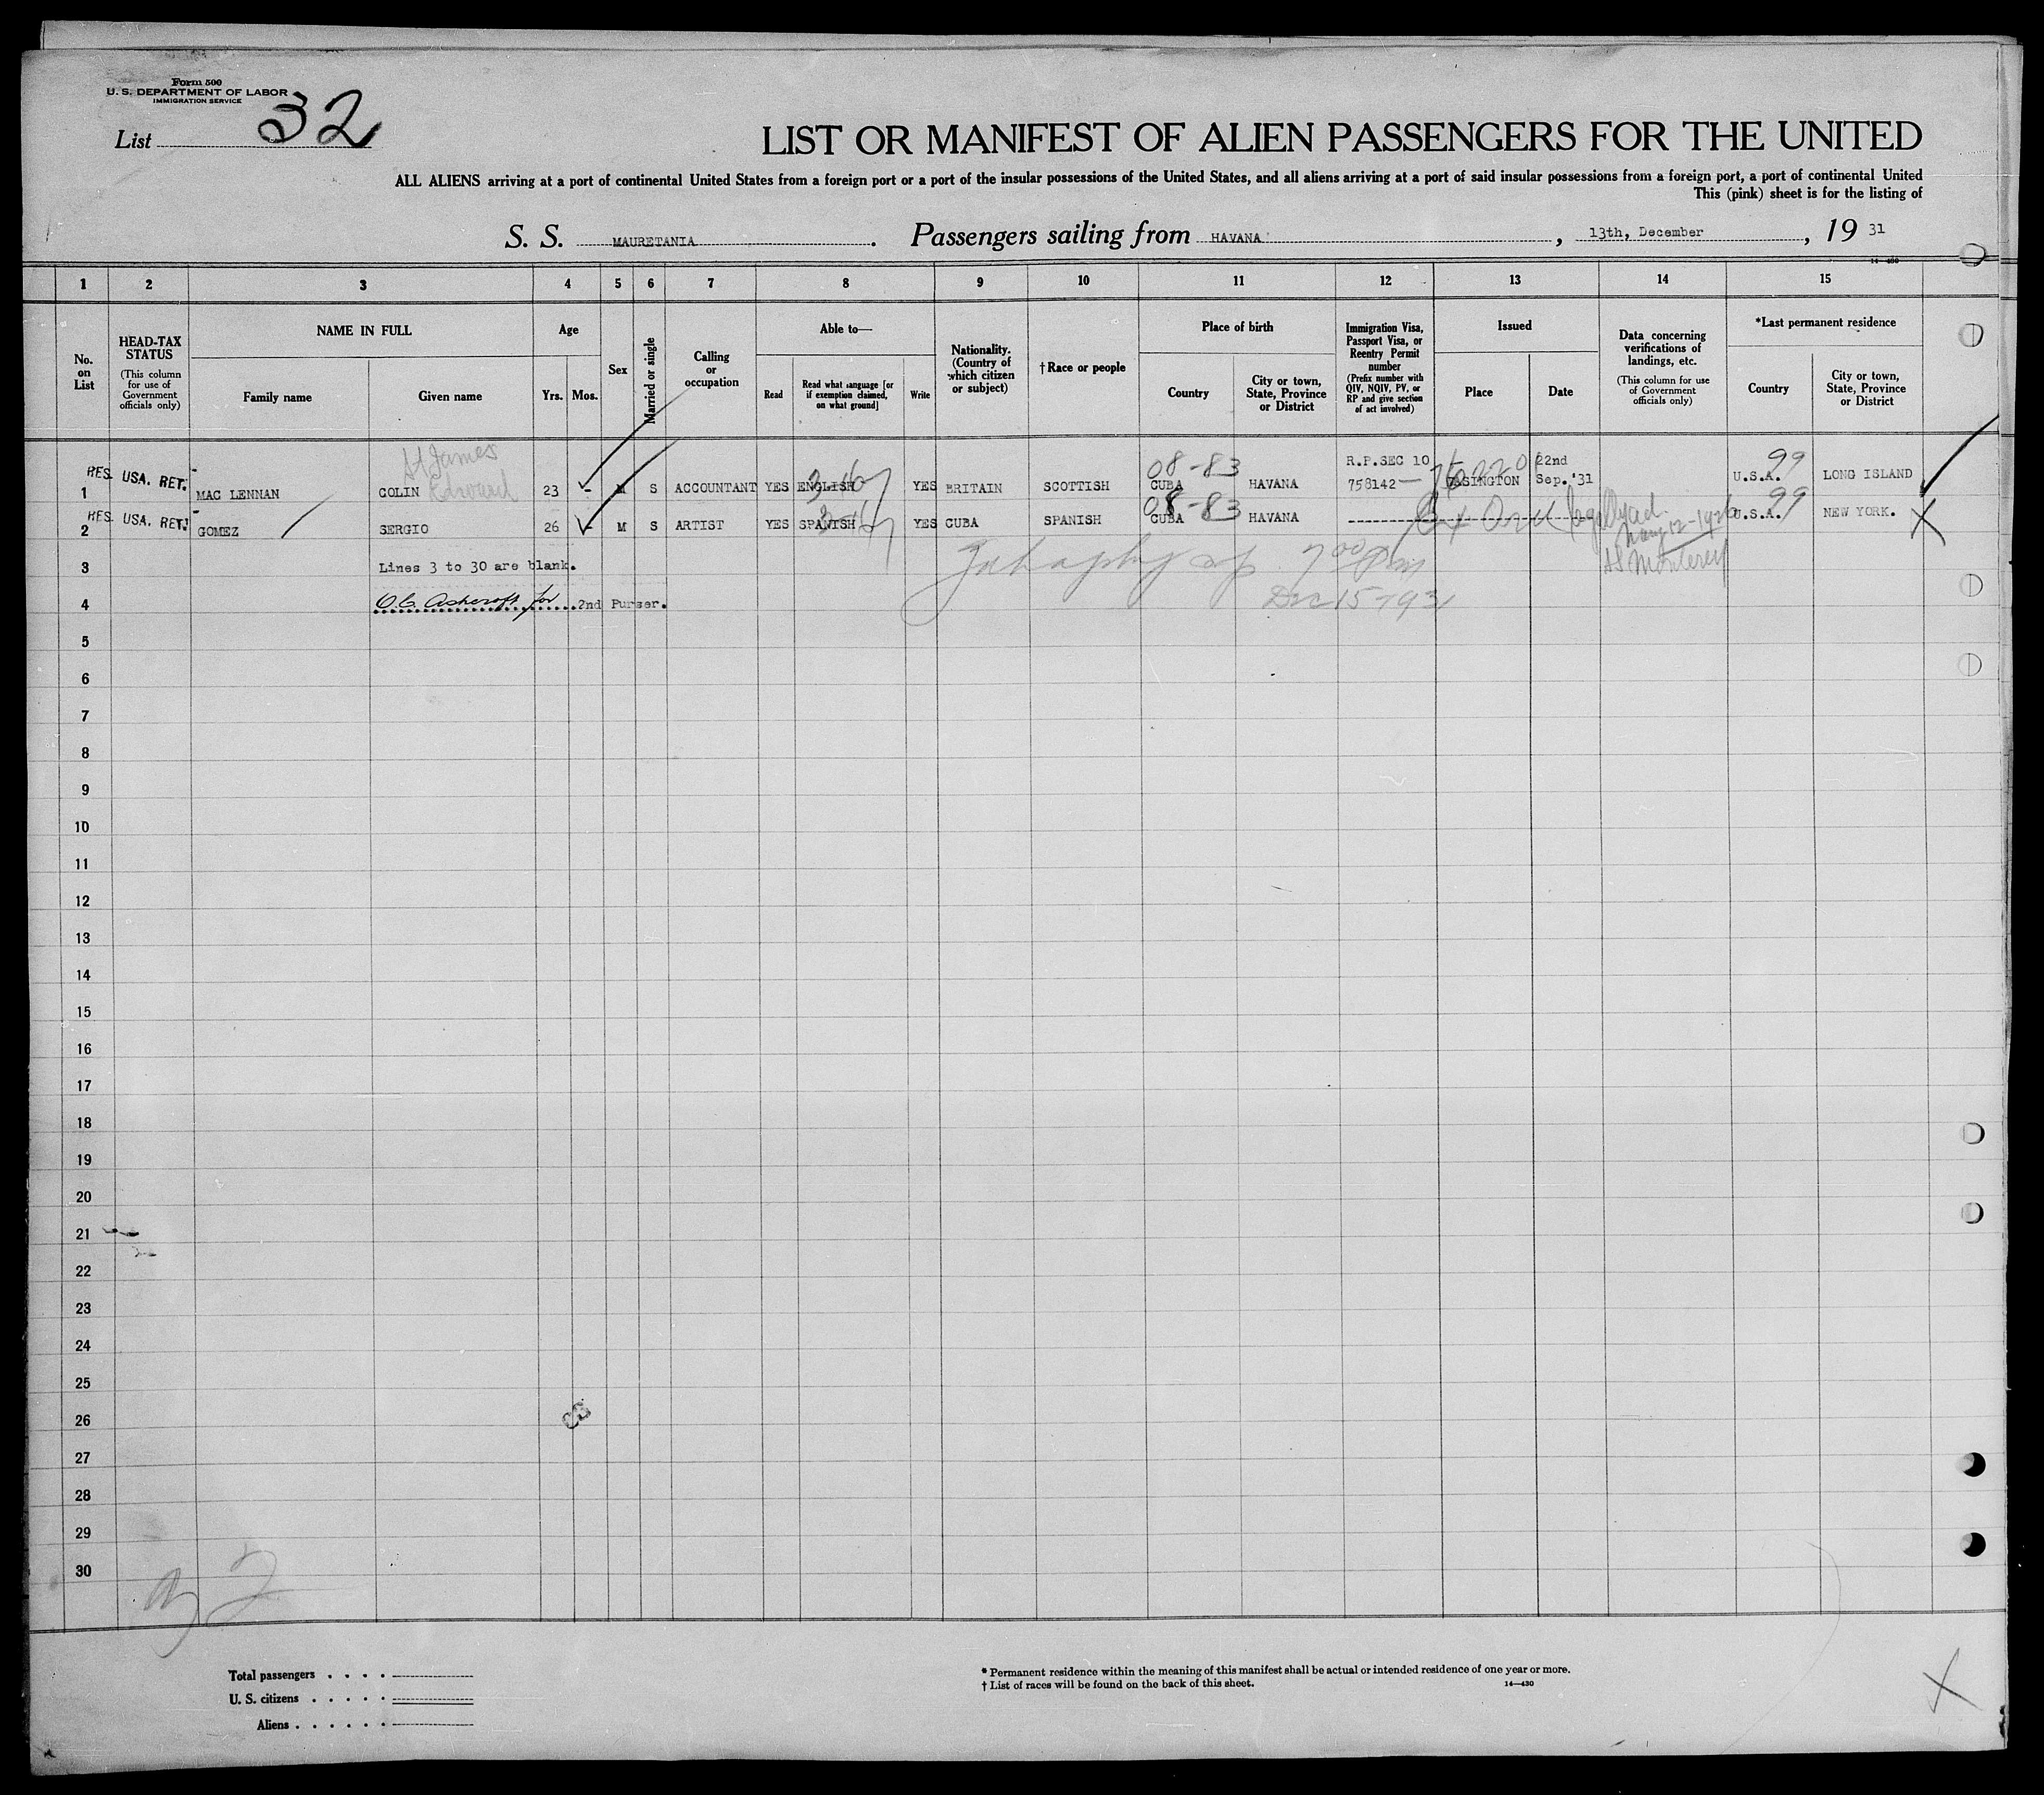 Form 500
U. S. DEPARTMENT OF LABOR
IMMIGRATION SERVICE
List 32
LIST OR MANIFEST OF ALIEN PASSENGERS FOR THE UNITED
ALL ALIENS arriving at a port of continental United States from a foreign port or a port of the insular possessions of the United States, and all aliens arriving at a port of said insular possessions from a foreign port, a port of continental United
This (pink) sheet is for the listing of
S. S. MAURETANIA. Passengers sailing from HAVANA, 13th, December, 19 31
14—430
1 2 3 4 5 6 7 8 9 10 11 12 13 14 15
No. on List
HEAD-TAX STATUS
(This column for use of Government officials only)
NAME IN FULL
Family name
Given name
Age
Yrs. Mos.
Sex
Married or single
Calling or occupation
Able to—
Read
Read what language [or if exemption claimed, on what ground]
Write
Nationality. (Country of which citizen or subject)
†Race or people
Place of birth
Country
City or town, State, Province or District
Immigration Visa, Passport Visa, or Reentry Permit number
(Prefix number with QIV, NQIV, PV, or RP and give section of act involved)
Issued
Place
Date
Data concerning verifications of landings, etc.
(This column for use of Government officials only)
*Last permanent residence
Country
City or town, State, Province or District
St James
Edward
08-83
R.P.SEC 10
22nd
99
1 RES. USA. RET. MAC LENNAN COLIN 23 - M S ACCOUNTANT YES ENGLISH YES BRITAIN SCOTTISH CUBA HAVANA 758142 — WASINGTON Sep.'31 U.S.A. LONG ISLAND
08-83
99
2 RES. USA. RET. GOMEZ SERGIO 26 - M S ARTIST YES SPANISH YES CUBA SPANISH CUBA HAVANA U.S.A. NEW YORK.
SS Monterey
3 Lines 3 to 30 are blank.
Dec 15-1931
4 O.C. Ashcroft for 2nd Purser.
5
6
7
8
9
10
11
12
13
14
15
16
17
18
19
20
21
22
23
24
25
26
27
28
29
30
Total passengers . . . .
U. S. citizens . . . . .
Aliens . . . . . .
* Permanent residence within the meaning of this manifest shall be actual or intended residence of one year or more.
† List of races will be found on the back of this sheet.
14—430
X